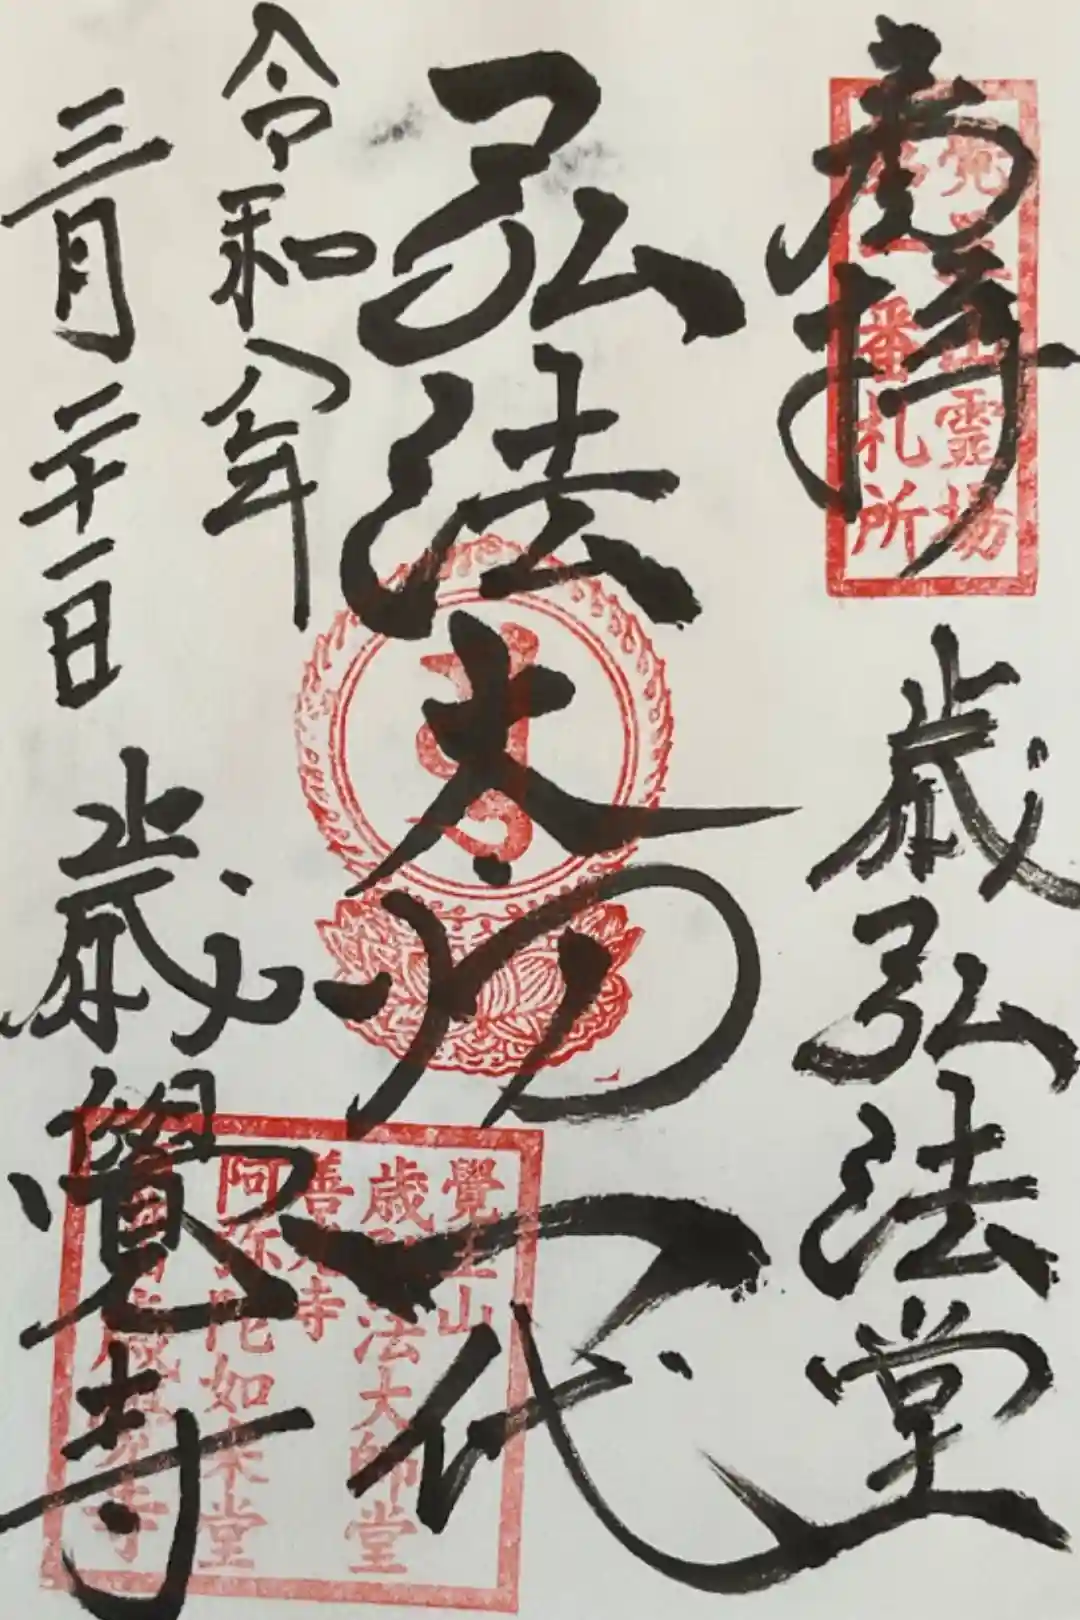 奉拝
歳弘法堂
弘法大師
一代
令和八年
三月二十一日
歳弘覺寺
覺王山霊場
番札所
覺王山
歳弘法大師堂
善光寺
阿弥陀如来堂